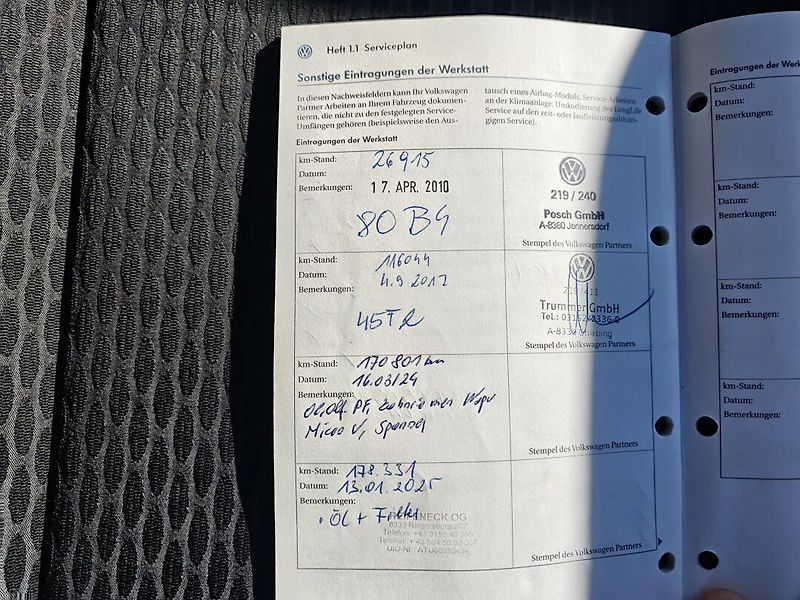 Heft 1.1 Serviceplan
Sonstige Eintragungen der Werkstatt
In diesen Nachweisfeldern kann Ihr Volkswagen
Partner Arbeiten an Ihrem Fahrzeug dokumen-
tieren, die nicht zu den festgelegten Service-
Umfängen gehören (beispielsweise den Aus-
tausch eines Airbag-Moduls, Service-Arbeiten
an der Klimaanlage, Umkodierung des LongLife
Service auf den zeit- oder laufleistungsabhän-
gigen Service).
Eintragungen der Werkstatt
km-Stand: 26915
Datum:
Bemerkungen: 17. APR. 2010
80 B4
219 / 240
Posch GmbH
A-8380 Jennersdorf
Stempel des Volkswagen Partners
km-Stand: 116044
Datum: 4.9 2017
Bemerkungen:
Trummer GmbH
Stempel des Volkswagen Partners
km-Stand: 170 801 km
Datum: 16.03/24
Bemerkungen:
Micro V, Spannr
Stempel des Volkswagen Partners
km-Stand: 178.331
Datum: 13.01.2025
Bemerkungen:
Öl + Filter
OG
Stempel des Volkswagen Partners
Eintragungen der Werk
km-Stand:
Datum:
Bemerkungen:
km-Stand:
Datum:
Bemerkungen:
km-Stand:
Datum:
Bemerkungen:
km-Stand:
Datum:
Bemerkungen: